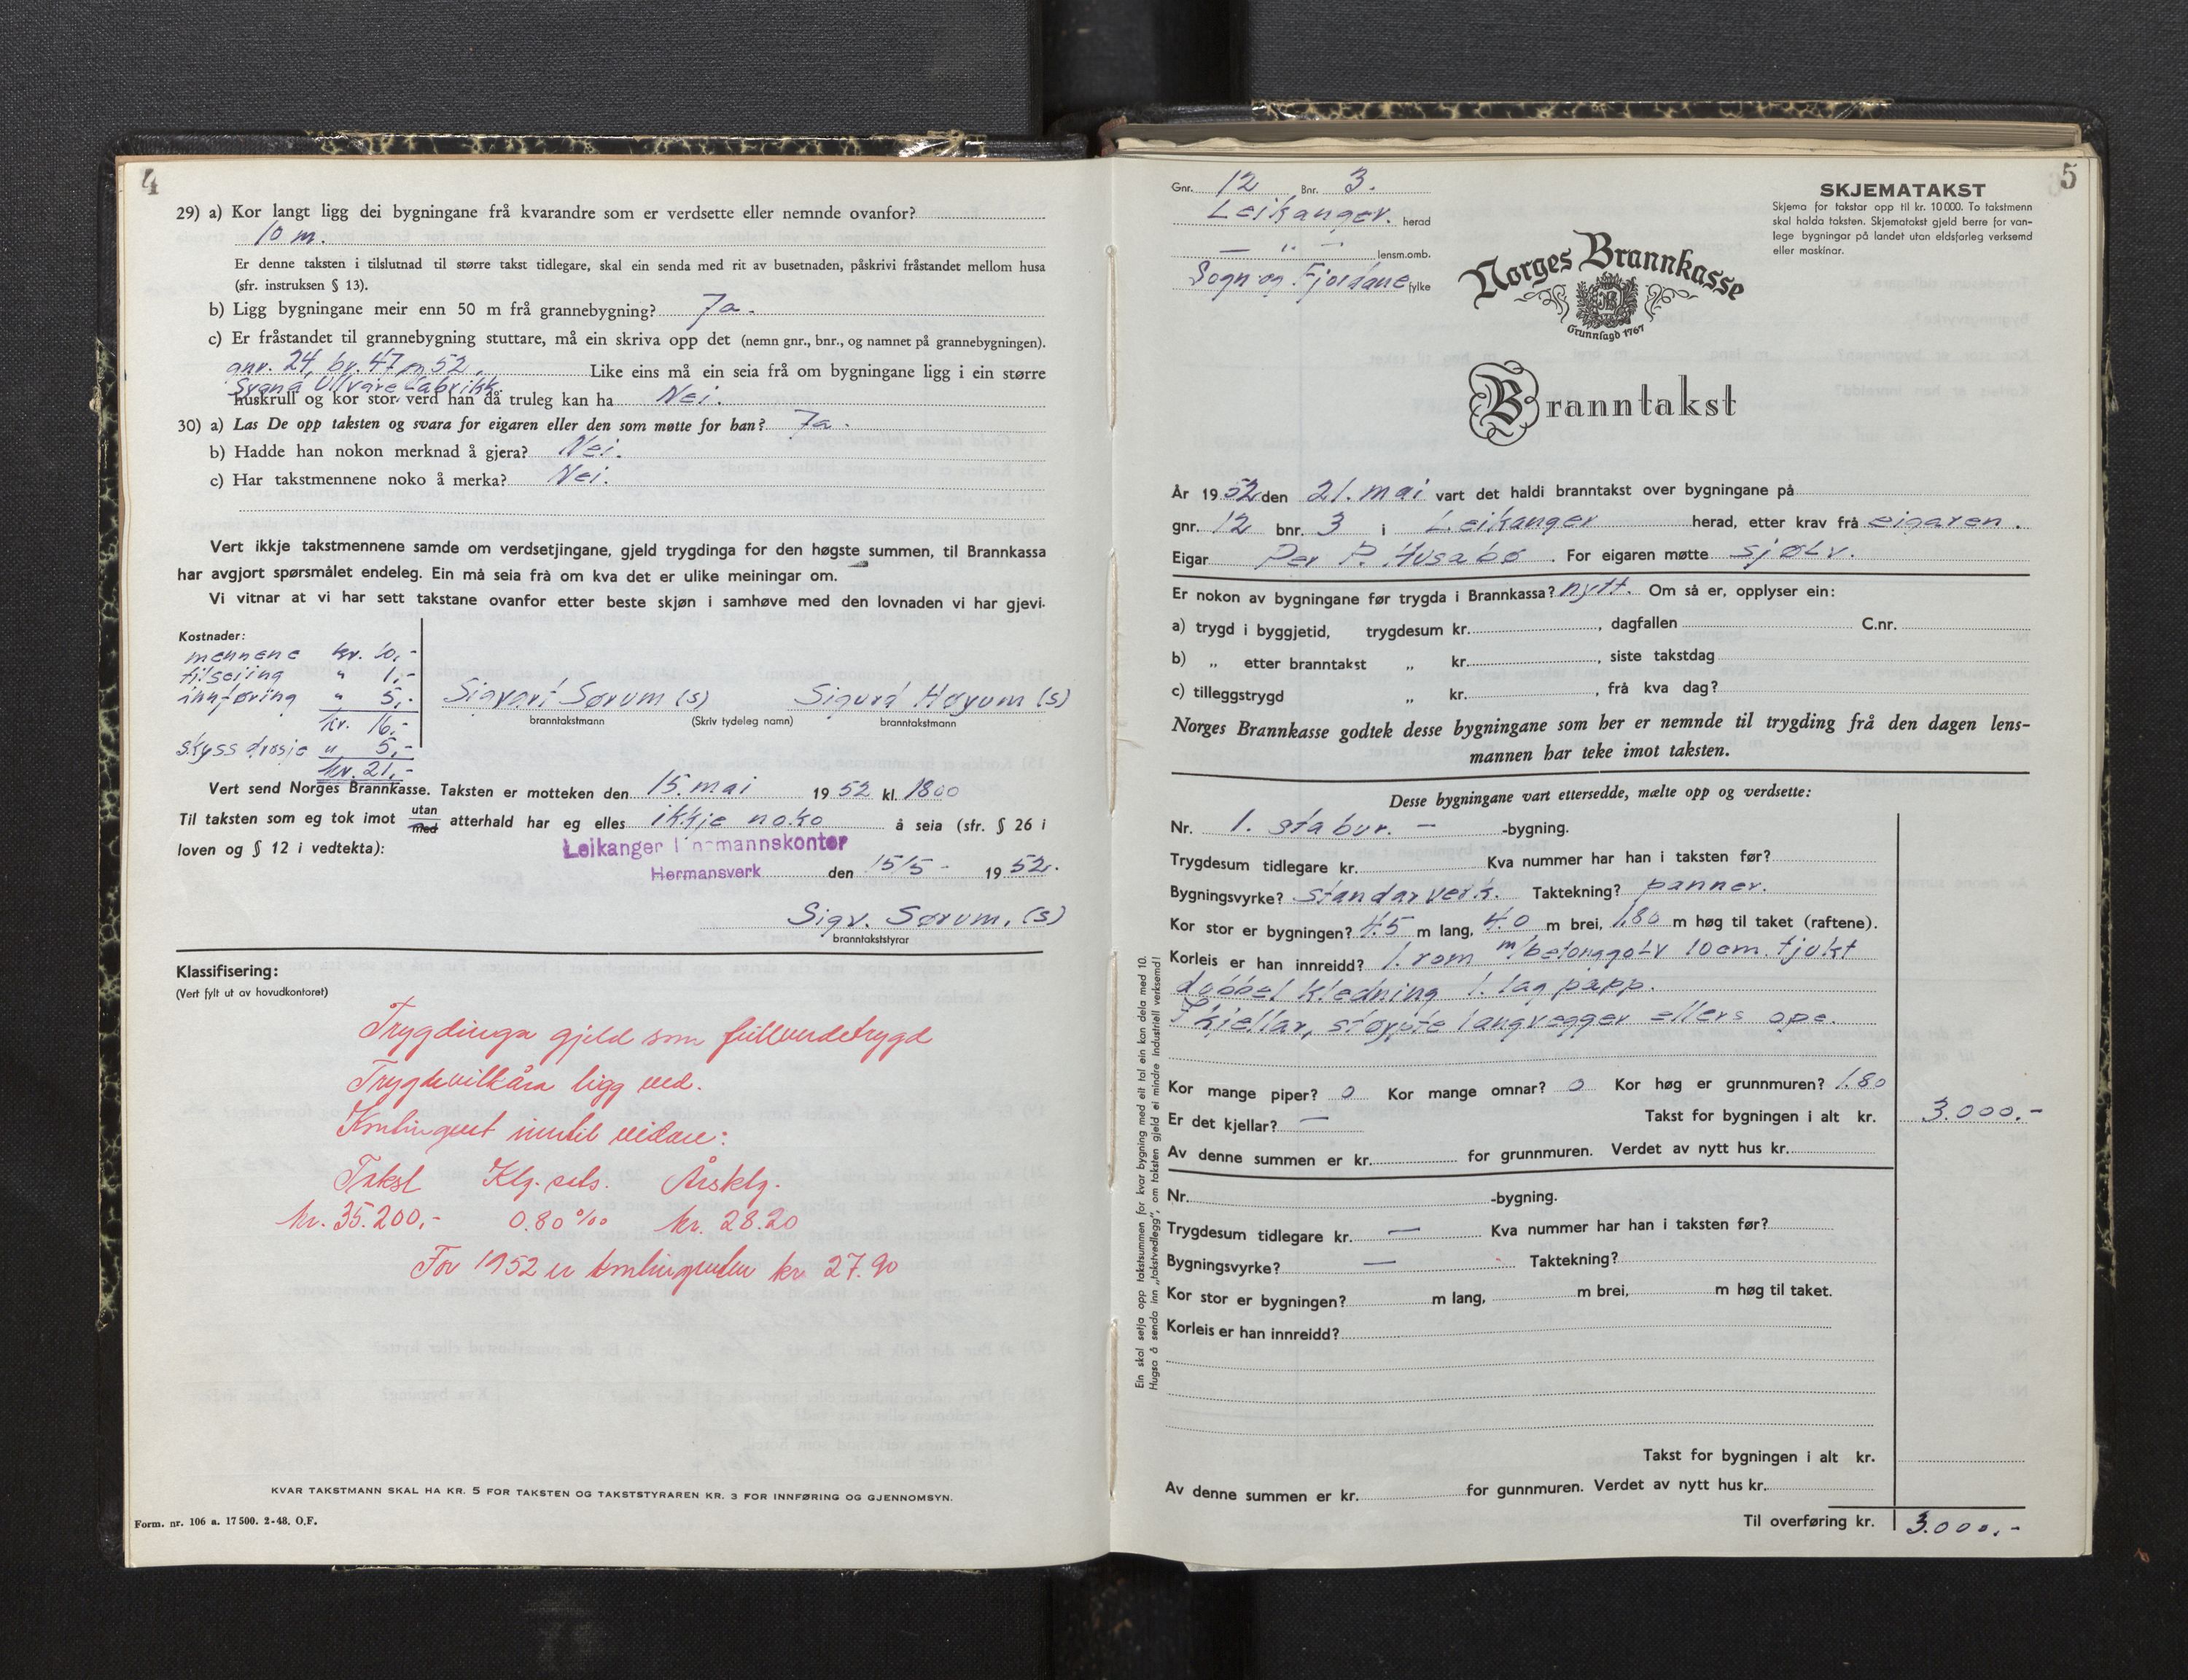 4
29) a) Kor langt ligg dei bygningane frå kvarandre som er verdsette eller nemnde ovanfor?
10 m.
Er denne taksten i tilslutnad til større takst tidlegare, skal ein senda med rit av busetnaden, påskrivi fråstandet mellom husa
(sfr. instruksen § 13).
b) Ligg bygningane meir enn 50 m frå grannebygning? Ja.
c) Er fråstandet til grannebygning stuttare, må ein skriva opp det (nemn gnr., bnr., og namnet på grannebygningen).
gnr. 24, br. 47 og 52. Like eins må ein seia frå om bygningane ligg i ein større
Sygna Ullvarefabrikk.
huskrull og kor stor verd han då truleg kan ha Nei.
30) a) Las De opp taksten og svara for eigaren eller den som møtte for han? Ja.
b) Hadde han nokon merknad å gjera? Nei.
c) Har takstmennene noko å merka? Nei.
Vert ikkje takstmennene samde om verdsetjingane, gjeld trygdinga for den høgste summen, til Brannkassa
har avgjort spørsmålet endeleg. Ein må seia frå om kva det er ulike meiningar om.
Vi vitnar at vi har sett takstane ovanfor etter beste skjøn i samhøve med den lovnaden vi har gjevi.
Kostnader:
mennene kr. 10,-
tilseiing " 1,-
innføring " 5,-
kr. 16,-
skyss drosje " 5,-
kr. 21,-
Sigvart Sørum (s) Sigurd Høyum (s)
branntakstmann (Skriv tydeleg namn) branntakstmann
Vert send Norges Brannkasse. Taksten er motteken den 15. mai 1952 kl. 1800
Til taksten som eg tok imot utan/med atterhald har eg elles ikkje noko å seia (sfr. § 26 i
loven og § 12 i vedtekta):
Leikanger lensmannskontor
Hermansverk den 15/5 - 1952.
Sigv. Sørum. (s)
branntakststyrar
Klassifisering:
(Vert fylt ut av hovudkontoret)
Trygdinga gjeld som fullverdetrygd
Trygdevilkåra ligg ved.
Kontingent inntil vidare:
Takst Klg. sats. Årsklg.
kr. 35.200,- 0.80 ‰ kr. 28.20
For 1952 er kontingenten kr 27.90
KVAR TAKSTMANN SKAL HA KR. 5 FOR TAKSTEN OG TAKSTSTYRAREN KR. 3 FOR INNFØRING OG GJENNOMSYN.
Form. nr. 106 a. 17 500. 2-48. O.F.
5
Gnr. 12 Bnr. 3.
Leikanger. herad
— " — lensm.omb.
Sogn og Fjordane fylke
SKJEMATAKST
Skjema for takstar opp til kr. 10 000. To takstmenn
skal halda taksten. Skjematakst gjeld berre for van-
lege bygningar på landet utan eldsfarleg verksemd
eller maskinar.
Norges Brannkasse
NB
Grunnlagd 1767
Branntakst
År 1952 den 21. mai vart det haldi branntakst over bygningane på
gnr. 12 bnr. 3 i Leikanger herad, etter krav frå eigaren.
Eigar Per P. Husabø. For eigaren møtte sjølv.
Er nokon av bygningane før trygda i Brannkassa? nytt. Om så er, opplyser ein:
a) trygd i byggjetid, trygdesum kr. , dagfallen C.nr.
b) „ etter branntakst „ kr. , siste takstdag
c) tilleggstrygd „ kr. , frå kva dag?
Norges Brannkasse godtek desse bygningane som her er nemnde til trygding frå den dagen lens-
mannen har teke imot taksten.
Desse bygningane vart ettersedde, mælte opp og verdsette:
Nr. 1. stabur. — -bygning.
Trygdesum tidlegare kr. Kva nummer har han i taksten før?
Bygningsvyrke? standarverk. Taktekning? panner.
Kor stor er bygningen? 4.5 m lang, 4.0 m brei, 1.80 m høg til taket (raftene).
Korleis er han innreidd? 1. rom m/betonggolv 10 cm. tjukt
dobbel kledning 1. lag papp.
I kjellar, støypte langvegger ellers ope.
Kor mange piper? 0 Kor mange omnar? 0 Kor høg er grunnmuren? 1.80
Er det kjellar? — Takst for bygningen i alt kr. 3.000.-
Av denne summen er kr. for grunnmuren. Verdet av nytt hus kr.
Nr. -bygning.
Trygdesum tidlegare kr. — Kva nummer har han i taksten før?
Bygningsvyrke? — Taktekning?
Kor stor er bygningen? m lang, m brei, m høg til taket.
Korleis er han innreidd?
Takst for bygningen i alt kr.
Av denne summen er kr. for gunnmuren. Verdet av nytt hus kr.
Til overføring kr. 3.000.-
Ein skal setja opp takstsummen for kvar bygning med eit tal ein kan dela med 10.
Hugsa å senda inn „takstvedlegg", om taksten gjeld ei mindre industriell verksemd!